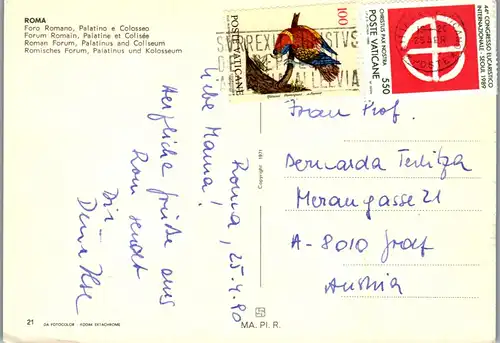 ROMA
Foro Romano, Palatino e Colosseo
Forum Romain, Palatine et Colisée
Roman Forum, Palatinus and Coliseum
Romisches Forum, Palatinus und Kolosseum
Roma, 25.4.90
Liebe Mama!
Herzliche Grüße aus
Rom sendet
Dir
Deine Ilse
21
DA FOTOCOLOR - KODAK EKTACHROME
Copyright 1971
MA. PI. R.
POSTE VATICANE
100
CHRISTUS PAX NOSTRA
POSTE VATICANE
550
44° CONGRESSO EUCARISTICO
INTERNAZIONALE - SEOUL 1989
SURREXIT CHRISTVS
ALLELVIA
Frau Prof.
Bernarda
Merangasse 21
A-8010 Graz
Austria